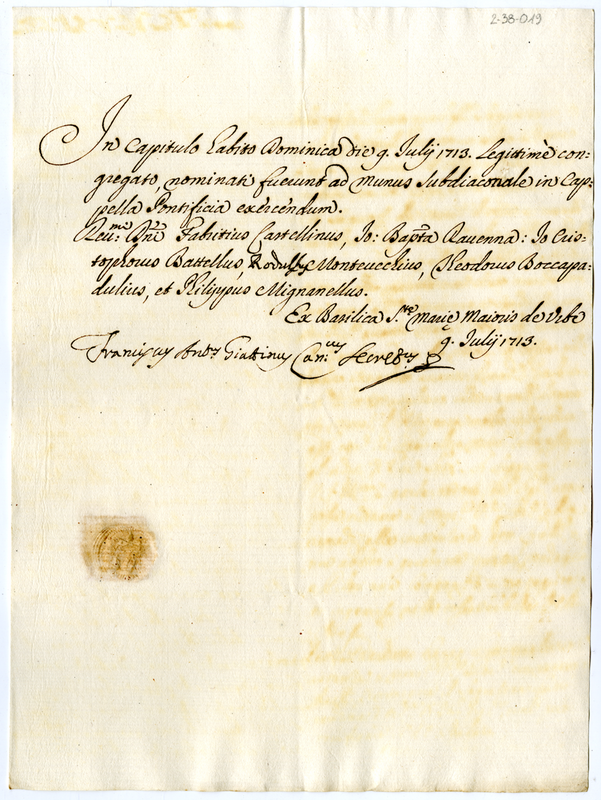 2-38-019
In Capitulo habito Dominica die 9. Julij 1713. Legittimè con=
gregato, nominati fuerunt ad munus Subdiaconale in Cap=
pella Pontificia exercendum.
Reu:mi Dni Fabritius Castellinus, Io: Bapta Rauenna: Io Cris=
tophorus Battellus Rodulfus Monteuechius, Theodorus Boccapa=
dulius, et Philippus Mignanellus.
Ex Basilica S.tæ Mariæ Maioris de Vrbe
9. Julij 1713.
Franciscus Ant.s Giattinus Can:cus Secret.us